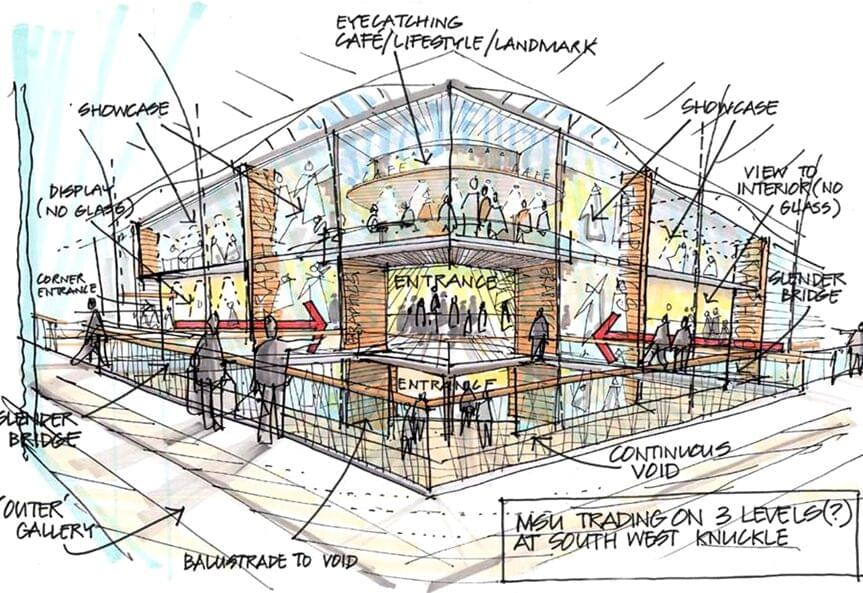 EYECATCHING
CAFE/LIFESTYLE/LANDMARK
SHOWCASE
SHOWCASE
DISPLAY
(NO GLASS)
VIEW TO
INTERIOR (NO
GLASS)
CORNER
ENTRANCE
ENTRANCE
SLENDER
BRIDGE
ENTRANCE
SLENDER
BRIDGE
CONTINUOUS
VOID
'OUTER'
GALLERY
BALUSTRADE TO VOID
MSU TRADING ON 3 LEVELS(?)
AT SOUTH WEST KNUCKLE